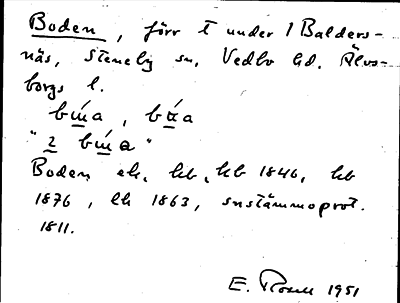 Boden, förr t under 1 Balders-
näs, Steneby sn, Vedbo hd. Älvs-
borgs l.
Boden ek, hb, hb 1846, hb
1876, lk 1863, snstämmoprot.
1811.
E. Rosell 1951